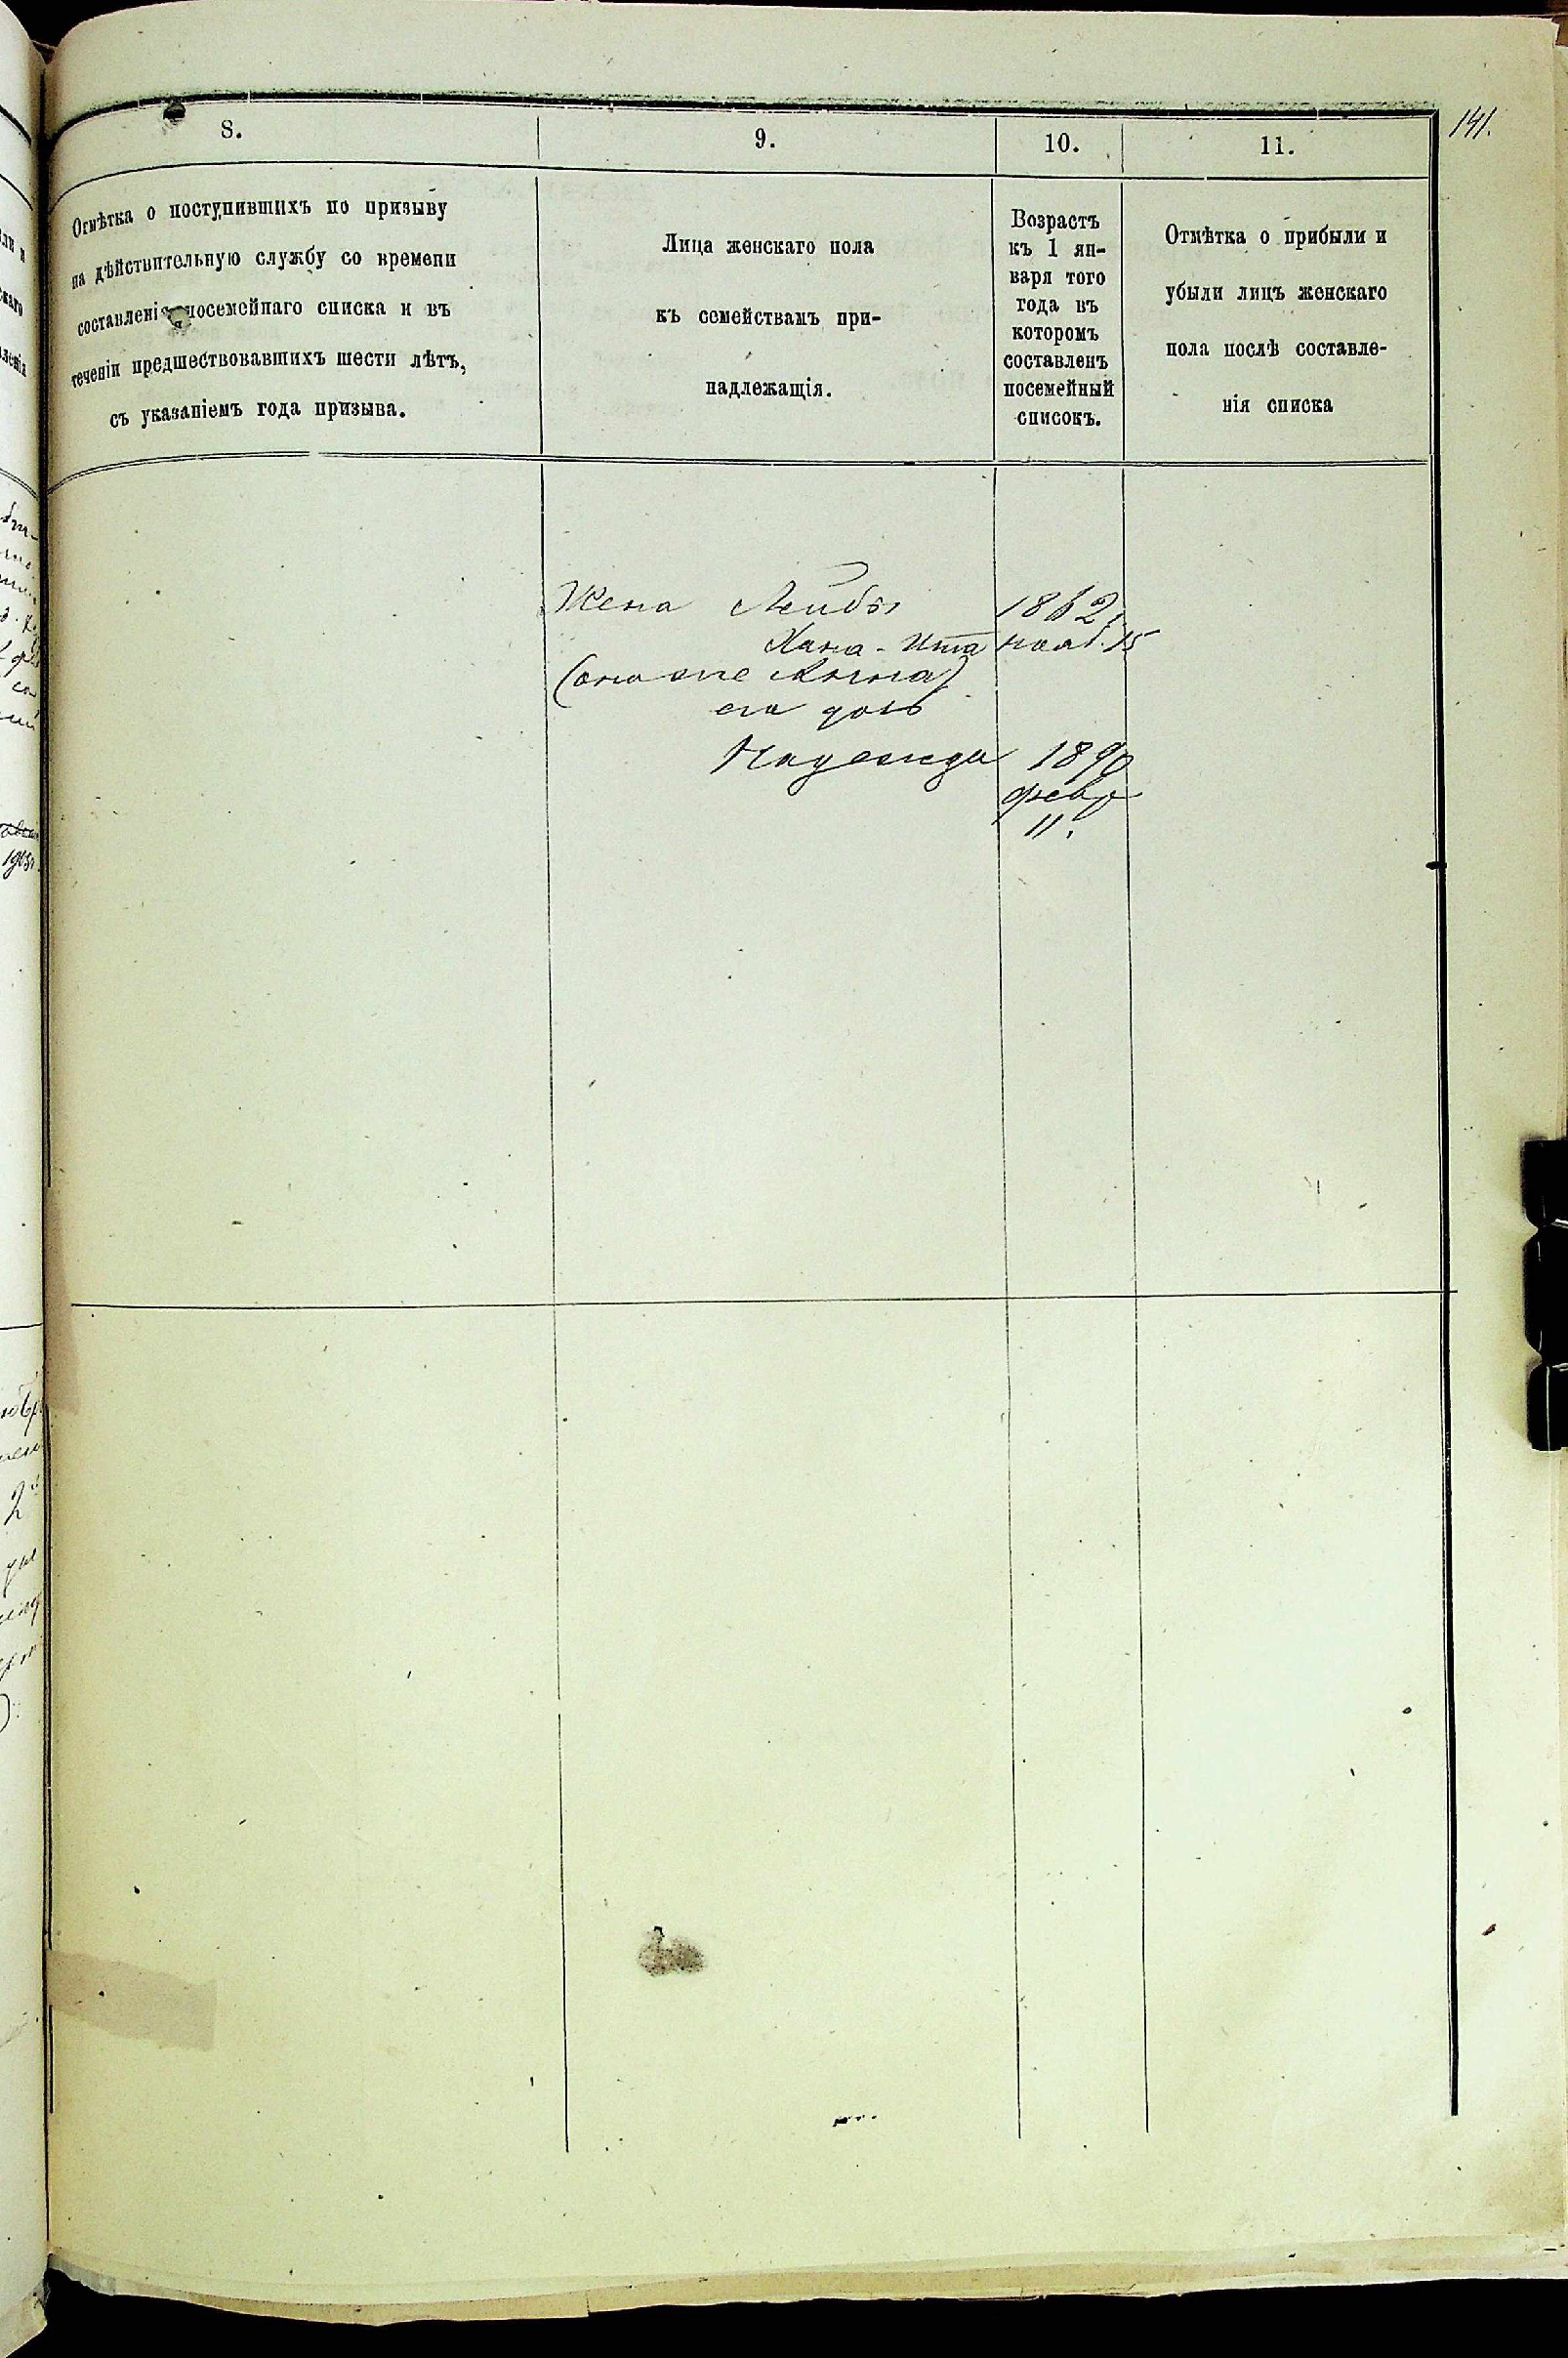 141.
8.
9.
10.
11.
Отмѣтка о поступившихъ по призыву
на дѣйствительную службу со времени
составленія посемейнаго списка и въ
теченіи предшествовавшихъ шести лѣтъ,
съ указаніемъ года призыва.
Лица женскаго пола
къ семействамъ при-
надлежащія.
Возрастъ
къ 1 ян-
варя того
года въ
которомъ
составленъ
посемейный
списокъ.
Отмѣтка о прибыли и
убыли лицъ женскаго
пола послѣ составле-
нія списка
Жена Лейбы 1862,
Хана-Ита нояб. 15
(она же Анна)
его дочь
Надежда 1890
февр
11.